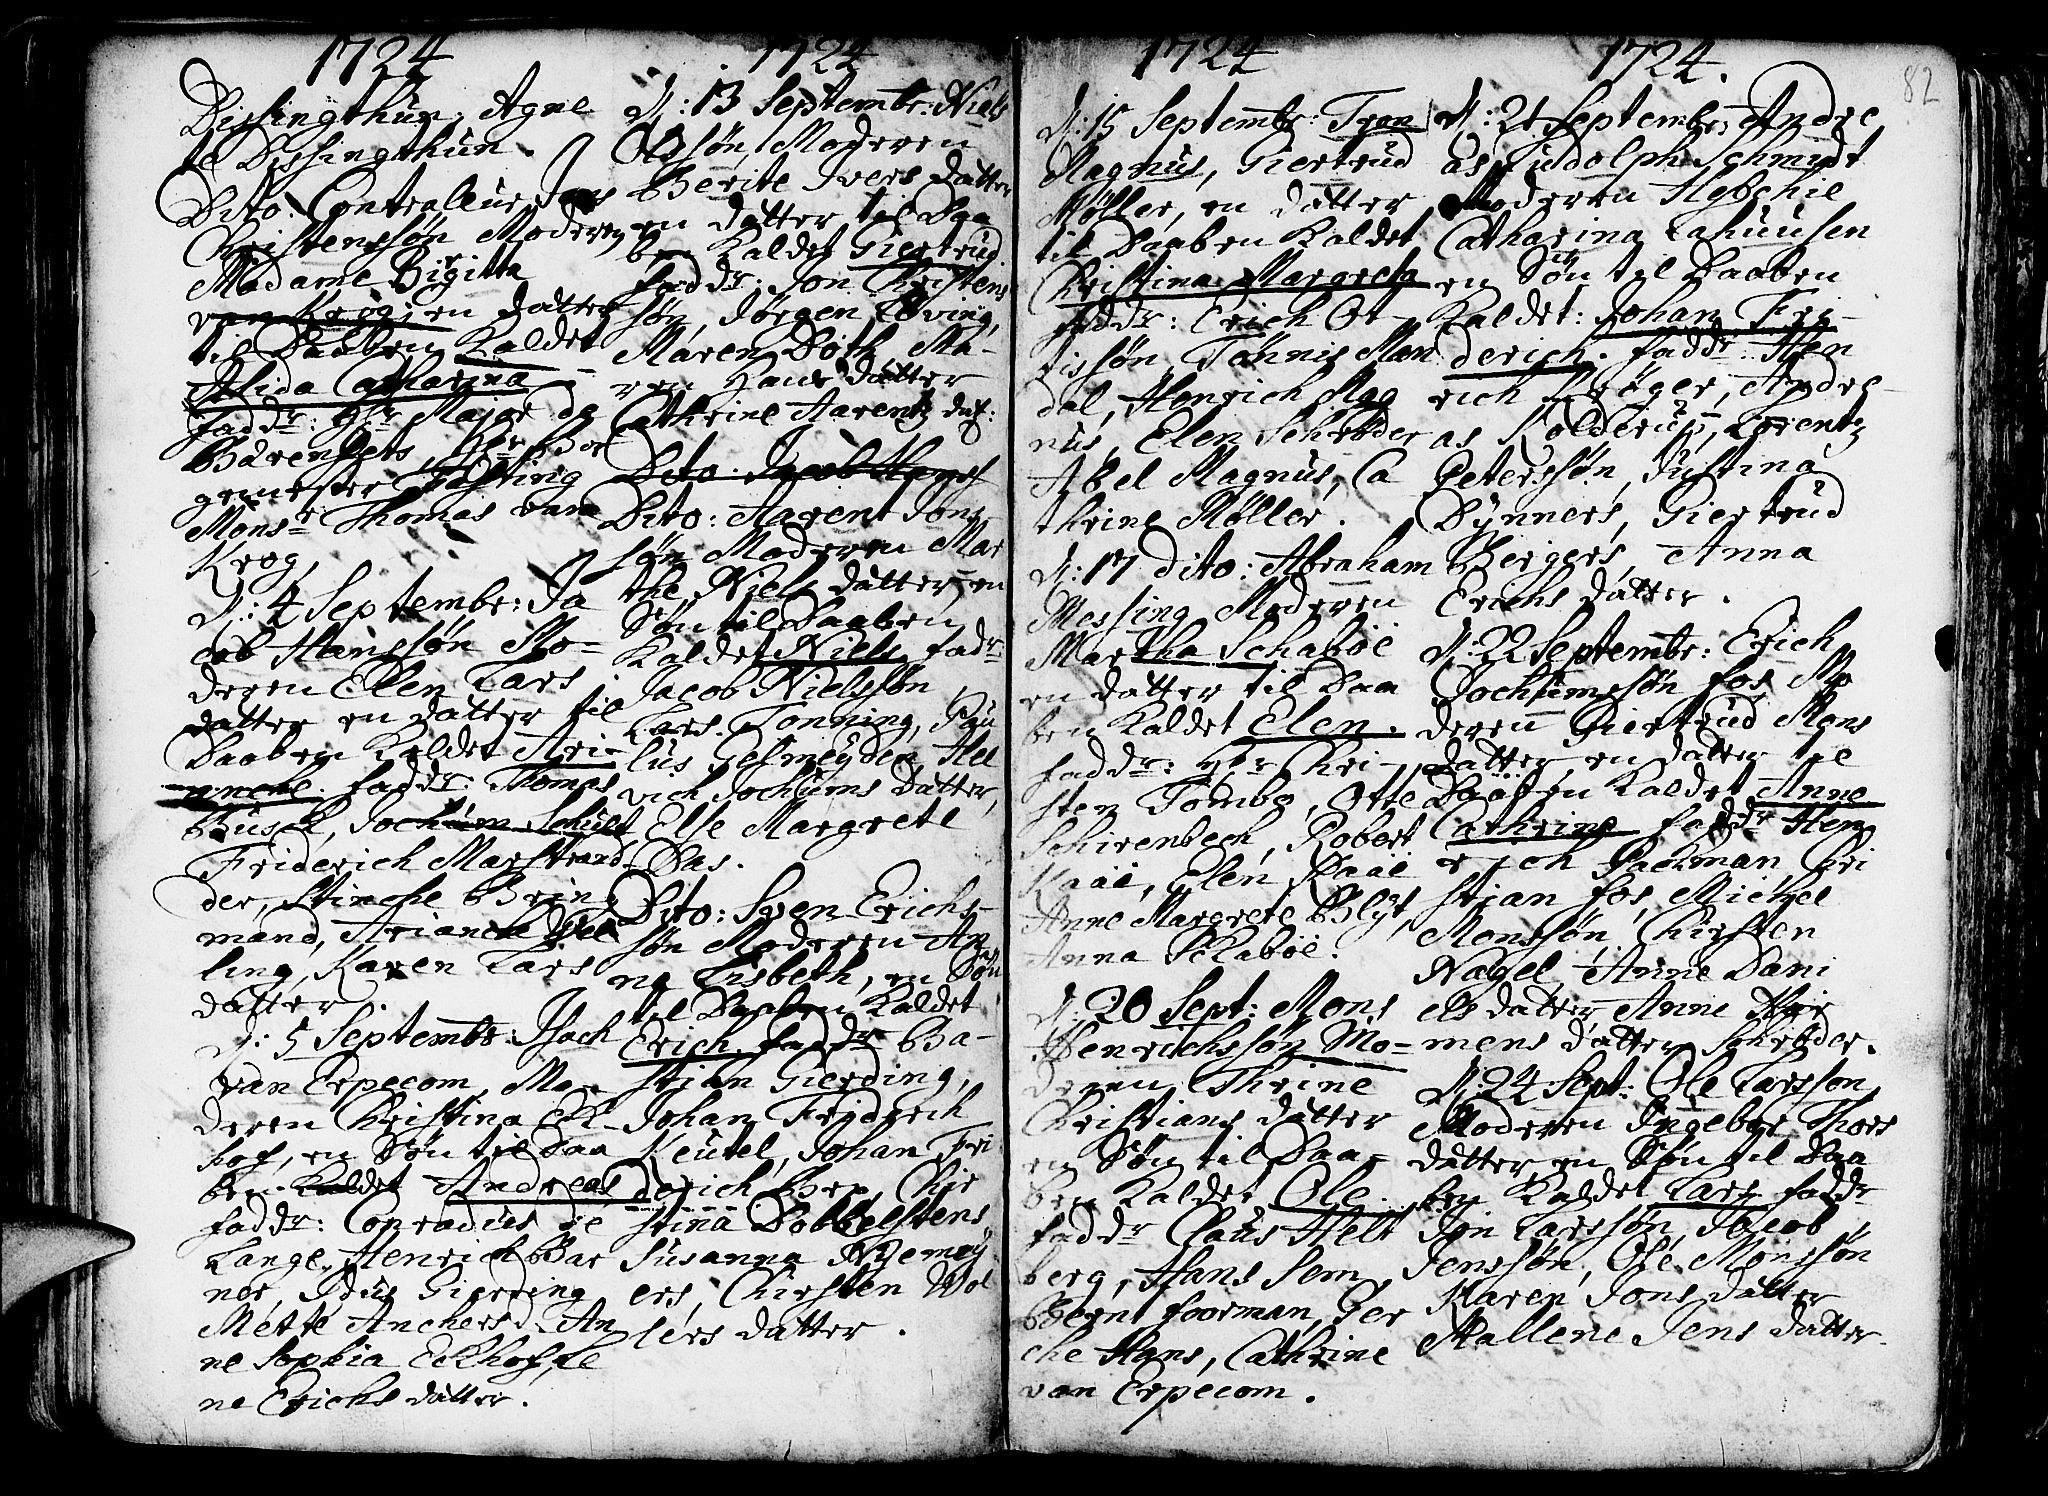 1724
Dissingthun, Agne
te Dissingthun.
Dito: Contralleur Jens
Christenssøn Moderen
Madame Birgitta
van Krog, en datter
til Daaben Kaldet
Alida Catharina
faddr: Hr Major de
Barenfets, Hr Bor
gemester Fasting
Monsr Thomas van
Krog,
d: 4 Septembr: Ja
cob Hanssøn Mo=
deren Ellen Lars
datter en datter til
Daaben Kaldet Ari-
anche. faddr: Thomas
Busch, Jochum Schult
Friderich Marstrand
der, Stinche Bring
mand, Arianche
ling, Karen Lars
datter.
d: 5 Septembr: Isach
van Erpecom, Mo-
deren Christina Ek-
hof, en Søn til Daa
ben Kaldet Andreas
faddr: Conradus de
Lange, Henrich Bar
ner, Idus Gierding
Mette Anchersd: An
ne Sophia Eckhof, le
ne Erichs datter.
1724
d: 13 Septembr: Niels
Olssøn, Moderen
Berite Ivers datter
en datter til Daa
ben Kaldet Giertrud.
faddr: Jon Christens
søn, Jørgen Løving,
Maren Both, Ma-
ren Hans datter
Cathrine Aarentz dat:
Dito: Jacob Hanss
Dito: Aarent Jons
søn Moderen Mar
the Niels datter, en
Søn til Daaben
Kaldet Niels, fadr
Jacob Nielssøn,
Lars Tonning, Pau
lus Gesmeyden, Hel
vich Jochums datter,
Else Margrete
Das.
Dito: Sven Erichs-
søn Moderen An
na Lisbeth, en Søn
til Daaben Kaldet
Erich. faddr Ba-
stian Gierding,
Johan Friderich
Keutel, Johan Fri
derich Chir
stina Dobbelstens
Susanna Nyemey
ers, Chirsten Wol
lers datter.
1724
d: 15 Septembr: Tron
Magnus, Giertrud
Møller, en datter
til Daaben Kaldet
Christina Margreta
faddr: Erich Ot-
tissøn Tønnis Man
dal, Henrich Mag
nus, Elen Schrøder
Abel Magnus, Ca
thrine Møller.
d: 17 dito: Abraham
Messing Moderen
Martha Schabøe
en datter til Daa
ben Kaldet Elen.
faddr: Hr Chri-
sten Tombo, Otte
Schirenbech, Robert
Kaae, Elen Kaae
Anne Margrete Blyt,
Anna Schabøe.
d: 20 Sept: Mons
Henrichssøn Mo=
deren Thrine
Christians datter
en Søn til Daa-
ben Kaldet Ole.
faddr Claus Helt
berg, Hans Sem,
Bernt foorman, Ger
che Hans, Cathrine
van Erpecom.
1724.
82
d: 21 Septembr: Andre
as Ludolph Schmidt
Moderen Hebchie
Catharina Lahuusen
en Søn til Daaben
Kaldet: Johan Fri-
derich. faddr: Hen
rich Krøger, Andre-
as Kolderup, Lorentz
Peterssøn, Justina
Dynners, Giertrud
Bergers, Anna
Erichs datter.
d: 22 Septembr: Erich
Jochumssøn fos Mo
deren Giertrud Mons
datter, en datter til
Daaben Kaldet Anne
Cathrine faddr Hen
rich Packman, Chri
stian fos, Michel
Monssøn, Chirsten
Nagel, Anne Dani
els datter Anne Her
mens datter Schrøder.
d: 24 Sept: Ole Larssøn
Moderen Ingebor Thors
datter, en Søn til Daa
ben Kaldet Lars faddr
Jon Larssøn, Jacob
Jenssøn, Ole Monssøn
Karen Jons datter
Mallene Jens datter